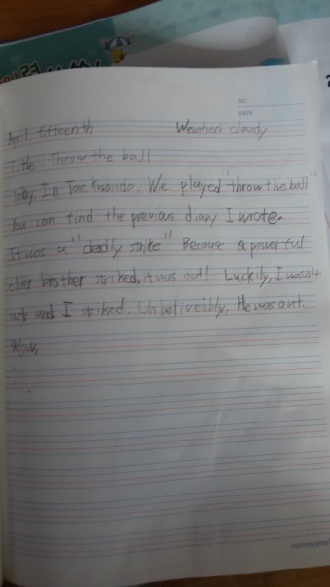 NO.
DATE
April fifteenth Weather: cloudy
Title: Throw the ball
Today, In Tae Kwondo, We played "throw the ball"
You can find the previous diary I wrote.
It was a "deadly strike" Because a powerful
older brother striked, it was out! Luckily, I wasn't
out and I striked. Unbeliveably, He was out.
Wow,